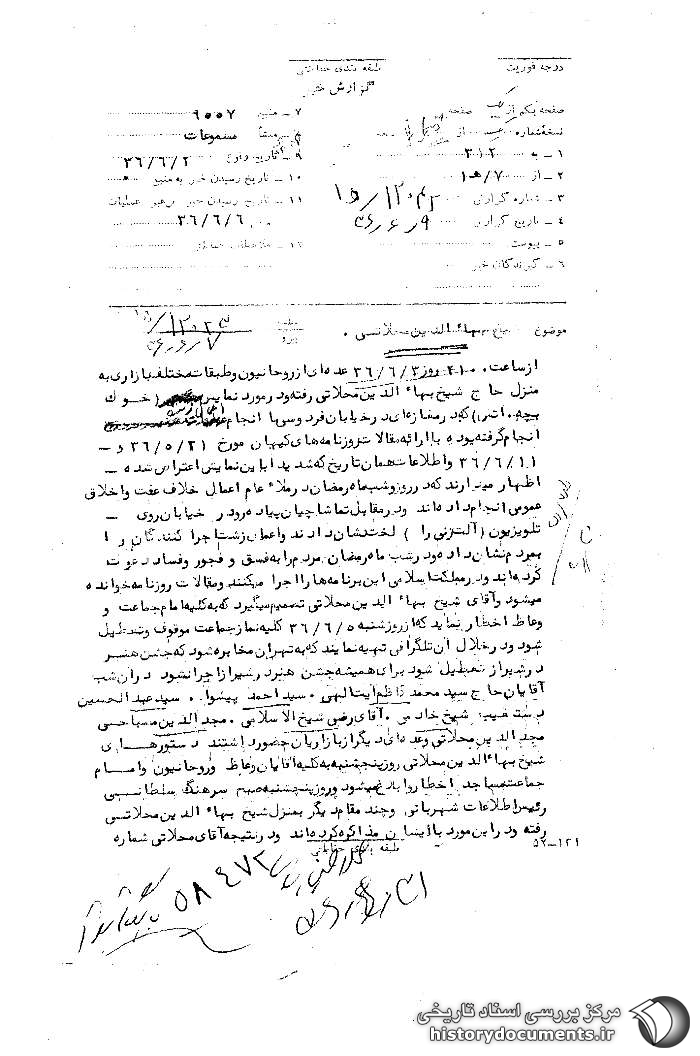 درجه فوریت
طبقه بندی حفاظتی
گزارش خبر
صفحه یکم از یک صفحه
نسخه شماره از
۱ - به ۳۱۲
۲ - از ۷/هـ۱
۳ - شماره گزارش ۱۲۰۴۲/هـ۱
۴ - تاریخ گزارش ۳۶/۶/۹
۵ - پیوست
۶ - گیرندگان خبر
۷ - منبع ۹۰۰۷
۸ - منشأ مسموعات
۹ - تاریخ وقوع ۳۶/۶/۲
۱۰ - تاریخ رسیدن خبر به منبع
۱۱ - تاریخ رسیدن خبر به رهبر عملیات
۳۶/۶/۶
۱۲ - ملاحظات حفاظتی
موضوع شیخ بهاء الدین محلاتی .
از ساعت ۲۱۰۰ روز ۳۶/۶/۳ عده ای از روحانیون و طبقات مختلف بازاری به
منزل حاج شیخ بهاء الدین محلاتی رفته و در مورد نمایش (خوک
بچه . آتش) که در مغازه ای در خیابان فردوسی انجام
انجام گرفته بوده با ارائه مقالات روزنامه های کیهان مورخ ۳۶/۵/۲۱ و -
۳۶/۶/۱۱ و اطلاعات همان تاریخ که شدیدا باین نمایش اعتراض شده -
اظهار میدارند که در روز و شب ماه رمضان در ملاء عام اعمال خلاف عفت و اخلاق
عمومی انجام داده اند و در مقابل تماشاچیان پیاده رو در خیابان روی -
تلویزیون (آلت زنی را) لخت نشان دادند و اعمال زشت اجرا کنندگان را
بمردم نشان داده و در شب ماه رمضان مردم را به فسق و فجور و فساد دعوت
کرده اند و در مملکت اسلامی این برنامه ها را اجرا میکنند و مقالات روزنامه خوانده
میشود و آقای شیخ بهاء الدین محلاتی تصمیم میگیرد که به کلیه امام جماعت و
وعاظ اخطار نماید که از روز شنبه ۳۶/۶/۵ کلیه نماز جماعت موقوف و تعطیل
شود و در خلال آن تلگرافی تهیه نمایند که به تهران مخابره شود که جشن هنر
در شیراز تعطیل شود برای همیشه جشن هنر در شیراز اجرا نشود در آن شب
آقایان حاج سید محمد کاظم آیت الهی . سید احمد پیشوا . سید عبدالحسین
دستغیب . شیخ خادمی . آقای رضی شیخ الاسلامی . مجد الدین مصباحی
مجد الدین محلاتی و عده ای دیگر از بازاریان حضور داشتند دستورهای
شیخ بهاء الدین محلاتی روز پنجشنبه به کلیه آقایان وعاظ و روحانیون و امام
جماعت مساجد اخطار و ابلاغ میشود و روز پنجشنبه صبح سرهنگ سلطانی
رئیس اطلاعات شهربانی و چند مقام دیگر بمنزل شیخ بهاء الدین محلاتی
رفته و در این مورد با ایشان مذاکره کرده اند و در نتیجه آقای محلاتی شماره
۵۲-۱۲۱
طبقه بندی حفاظتی
۵۸۴۷۳
مرکز بررسی اسناد تاریخی
historydocuments.ir